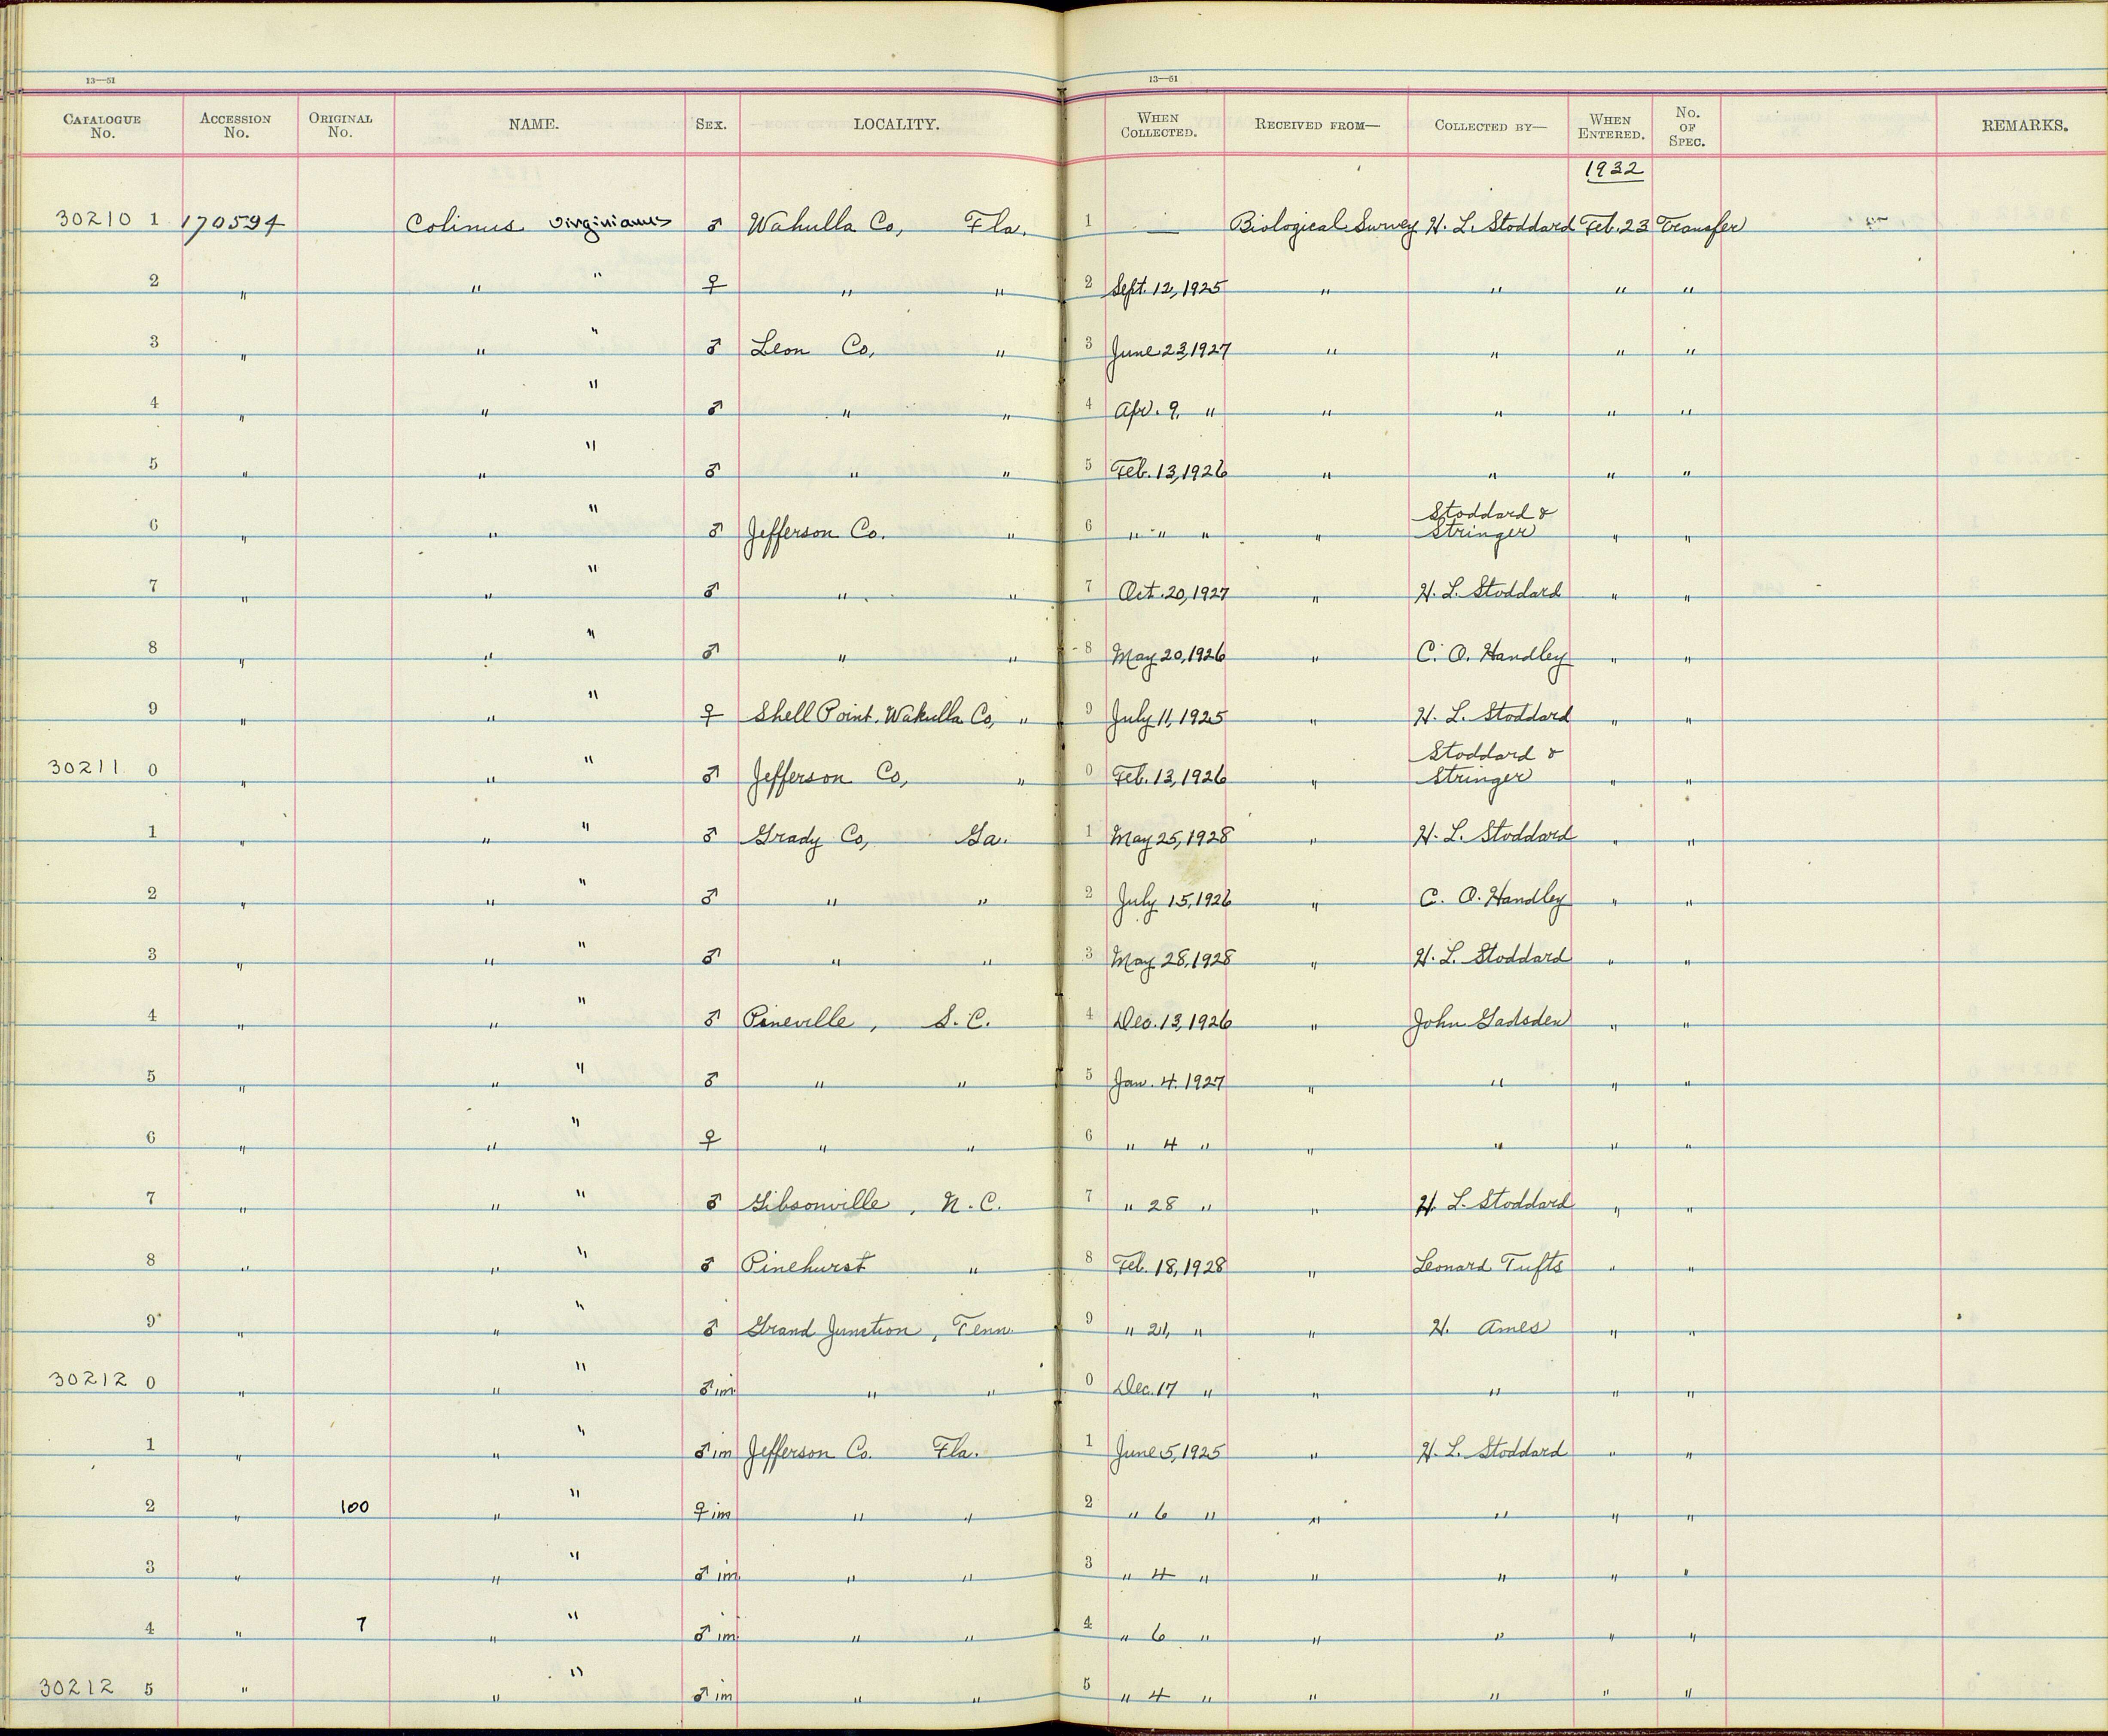 13—51
13—51
CATALOGUE No. ACCESSION No. ORIGINAL No. NAME. SEX. LOCALITY. WHEN COLLECTED. RECEIVED FROM— COLLECTED BY— WHEN ENTERED. No. OF SPEC. REMARKS.
1932
30210 1 170594 Colinus virginianus ♂ Wahulla Co, Fla. 1 — Biological Survey H. L. Stoddard Feb. 23 Transfer
2 " " " ♀ " " 2 Sept. 12, 1925 " " " "
3 " " " ♂ Leon Co, " 3 June 23, 1927 " " " "
4 " " " ♂ " " 4 Apr. 9, " " " " "
5 " " " ♂ " " 5 Feb. 13, 1926 " " " "
6 " " " ♂ Jefferson Co. " 6 " " " " Stoddard & Stringer " "
7 " " " ♂ " " 7 Oct. 20, 1927 " H. L. Stoddard " "
8 " " " ♂ " " 8 May 20, 1926 " C. O. Handley " "
9 " " " ♀ Shell Point, Wakulla Co, " 9 July 11, 1925 " H. L. Stoddard " "
30211 0 " " " ♂ Jefferson Co, " 0 Feb. 13, 1926 " Stoddard & Stringer " "
1 " " " ♂ Grady Co, Ga. 1 May 25, 1928 " H. L. Stoddard " "
2 " " " ♂ " " 2 July 15, 1926 " C. O. Handley " "
3 " " " ♂ " " 3 May 28, 1928 " H. L. Stoddard " "
4 " " " ♂ Pineville, S. C. 4 Dec. 13, 1926 " John Gadsden " "
5 " " " ♂ " " 5 Jan. 4. 1927 " " " "
6 " " " ♀ " " 6 " 4 " " " " "
7 " " " ♂ Gibsonville, N. C. 7 " 28 " " H. L. Stoddard " "
8 " " " ♂ Pinehurst " 8 Feb. 18, 1928 " Leonard Tufts " "
9 " " " ♂ Grand Junction, Tenn. 9 " 21, " " H. Ames " "
30212 0 " " " ♂ im " " 0 Dec. 17 " " " " "
1 " " " ♂ im Jefferson Co. Fla. 1 June 5, 1925 " H. L. Stoddard " "
2 " 100 " " ♀ im " " 2 " 6 " " " " "
3 " " " ♂ im. " " 3 " 4 " " " " "
4 " 7 " " ♂ im. " " 4 " 6 " " " " "
30212 5 " " " ♂ im " " 5 " 4 " " " " "